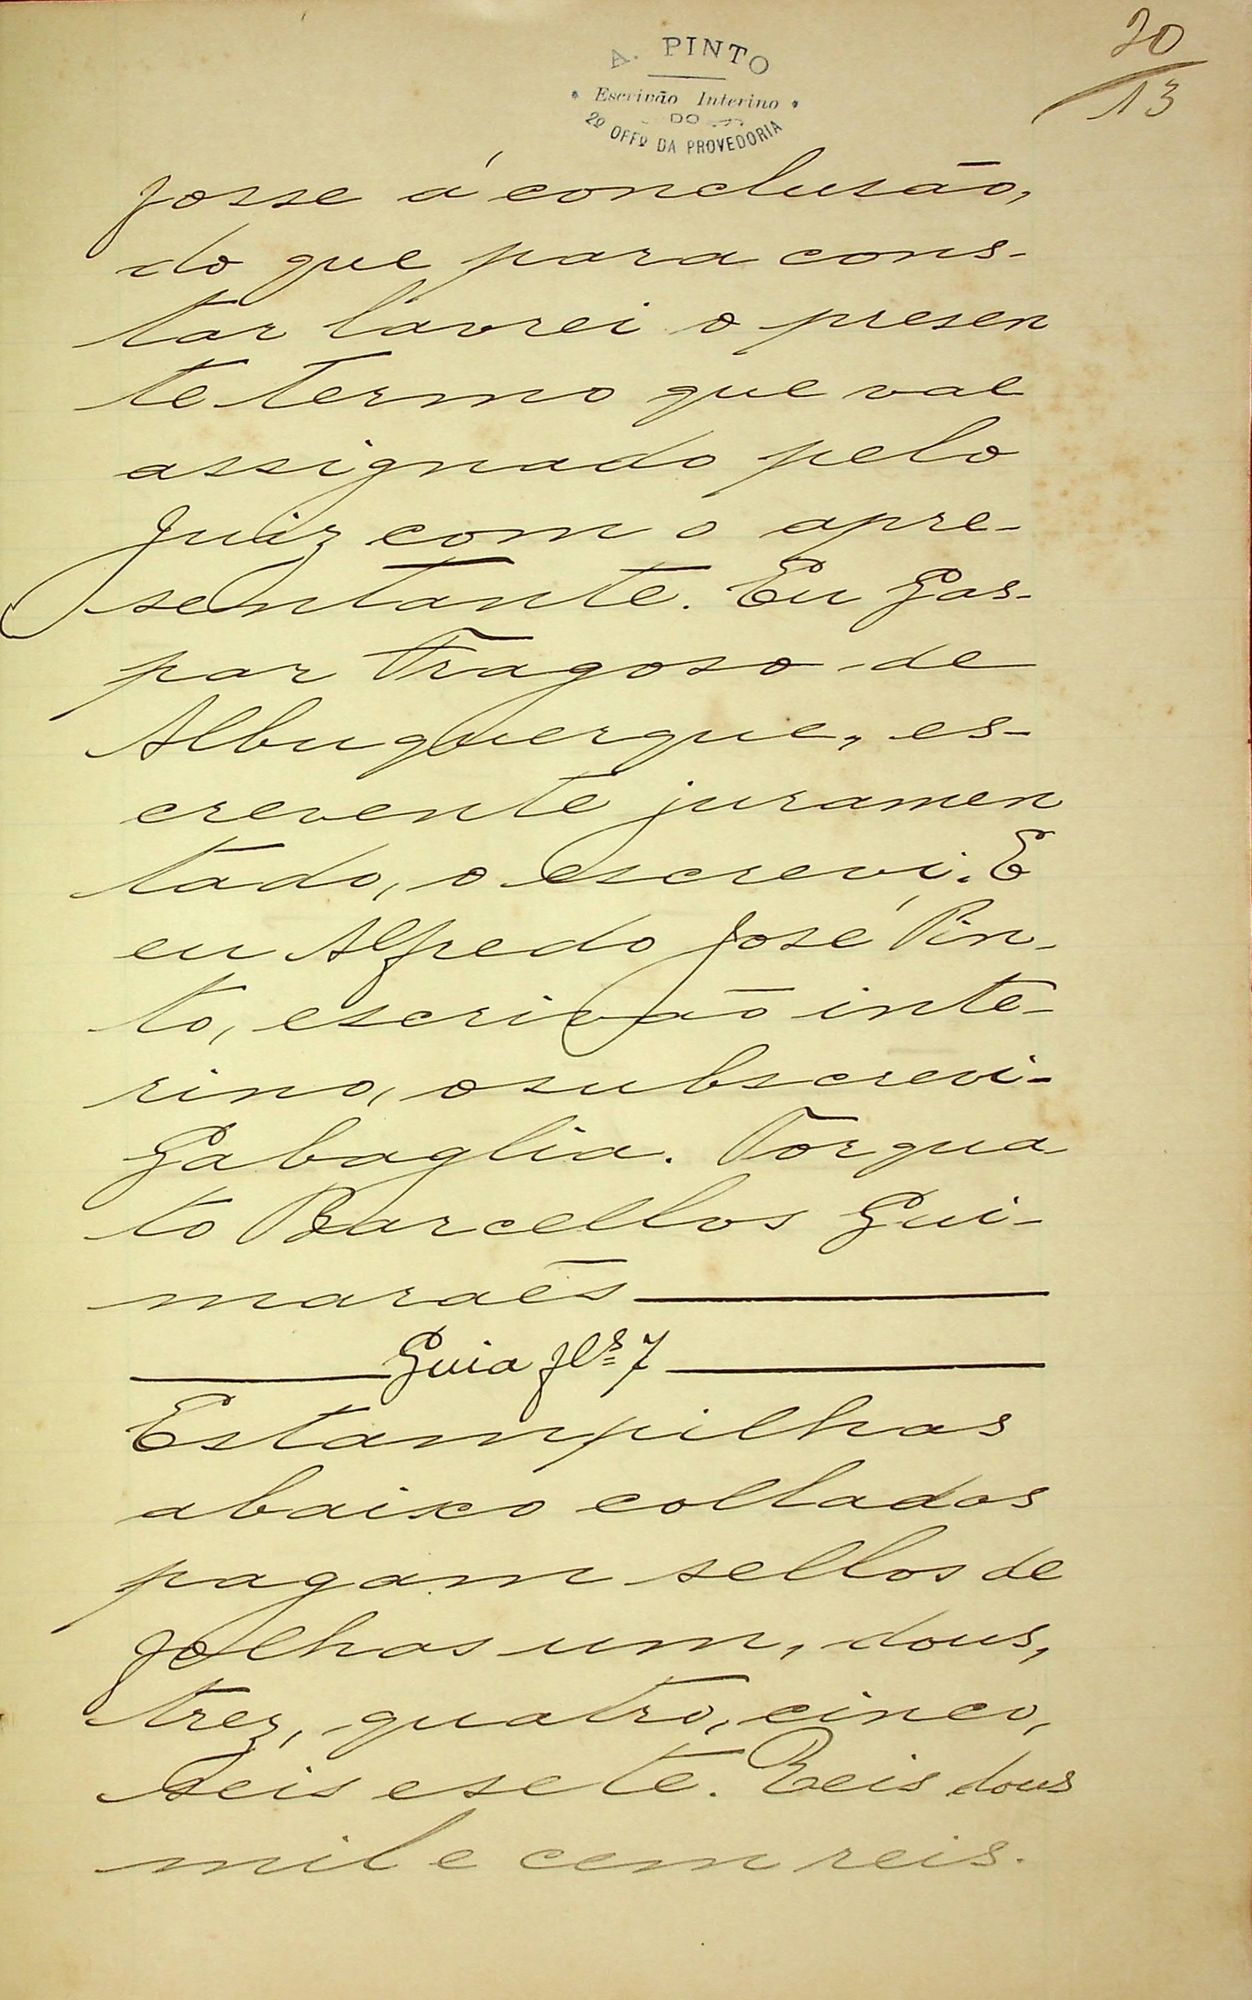 20
13
A. PINTO
Escrivão Interino
DO
2º OFFº DA PROVEDORIA
fosse á conclusão,
do que para cons-
tar lavrei o presen
te termo que vae
assignado pelo
Juiz com o apre-
sentante. Eu Gas-
par Fragoso de
Albuquerque, es-
crevente juramen
tado, o escrevi. E
eu Alfredo José Pin-
to, escrivão inte-
rino, o subscrevi-
Gabaglia. Torqua
to Barcellos Gui-
maraẽs
Guia fls 7
Estampilhas
abaixo colladas
pagam sellos de
folhas um, dous,
trez, quatro, cinco,
seis e sete. Reis dous
mil e cem reis.